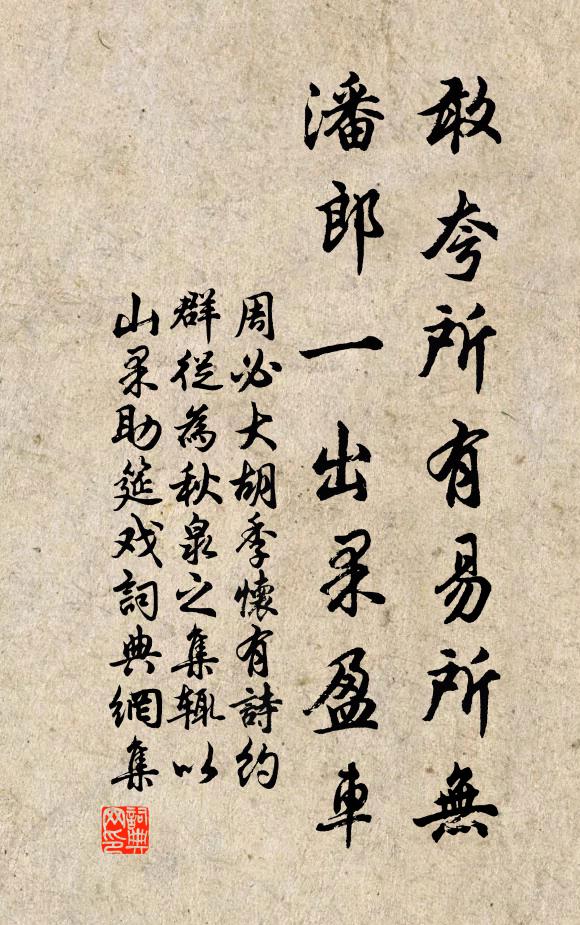 敢夸所有易所無
潘郎一出果盈車
周必大胡季懷有詩約
群從為秋泉之集輒以
山果助筵戏詞典網集
詞典
网印